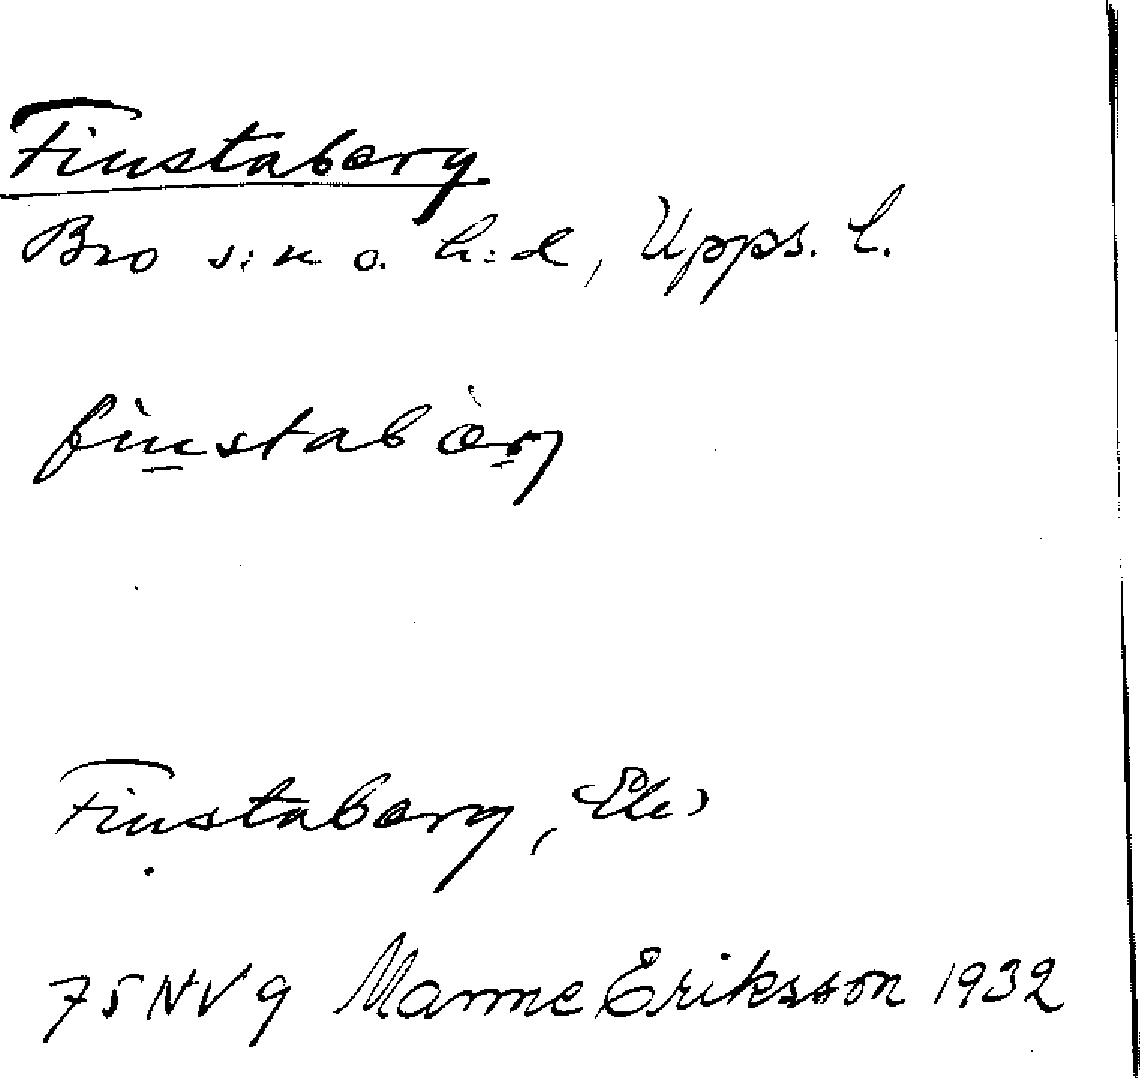 Finstaberg
Bro s:n o. h:d, Upps. l.
finstabærj
Finstaberg, Ek
75 NV 9 Manne Eriksson 1932